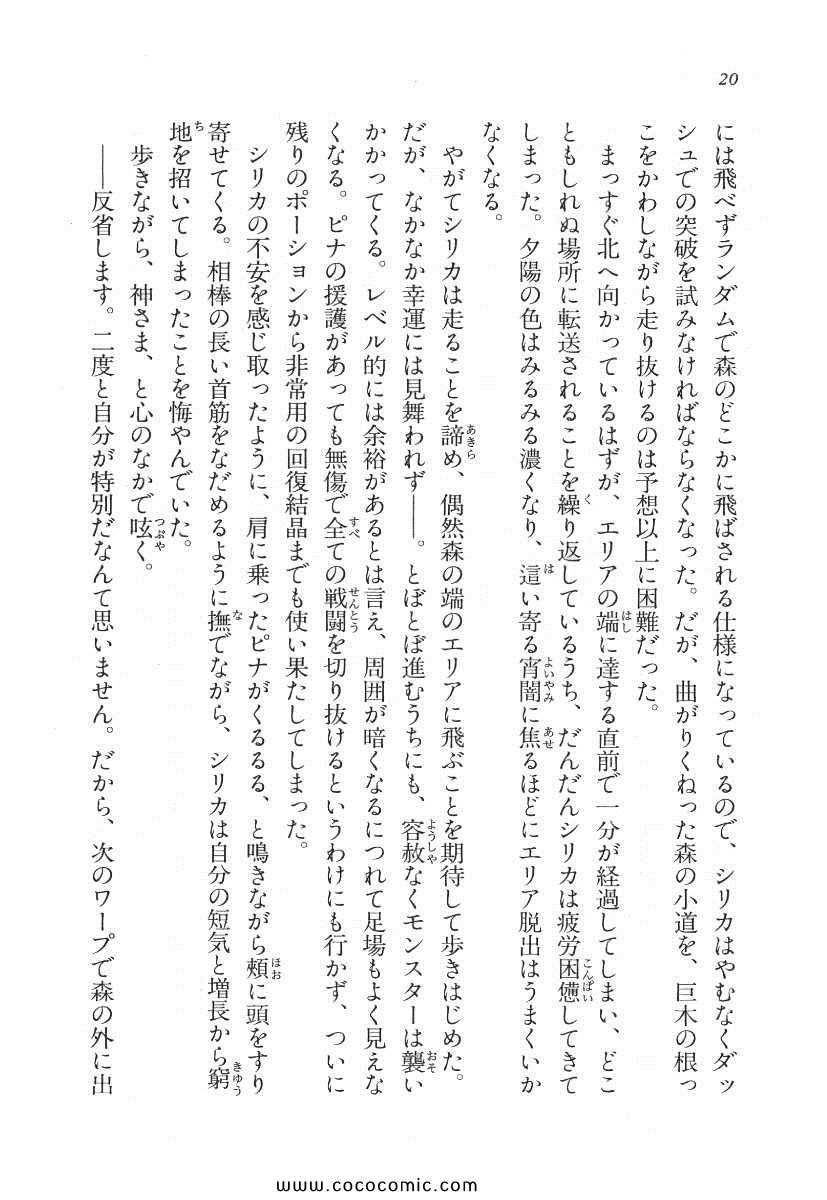 20
には飛べずランダムで森のどこかに飛ばされる仕様になっているので、シリカはやむなくダッ
シュでの突破を試みなければならなくなった。だが、曲がりくねった森の小道を、巨木の根っ
こをかわしながら走り抜けるのは予想以上に困難だった。
まっすぐ北へ向かっているはずが、エリアの端に達する直前で一分が経過してしまい、どこ
ともしれぬ場所に転送されることを繰り返しているうち、だんだんシリカは疲労困憊してきて
しまった。夕陽の色はみるみる濃くなり、這い寄る宵闇に焦るほどにエリア脱出はうまくいか
なくなる。
やがてシリカは走ることを諦め、偶然森の端のエリアに飛ぶことを期待して歩きはじめた。
だが、なかなか幸運には見舞われず——。とぼとぼ進むうちにも、容赦なくモンスターは襲い
かかってくる。レベル的には余裕があるとは言え、周囲が暗くなるにつれて足場もよく見えな
くなる。ピナの援護があっても無傷で全ての戦闘を切り抜けるというわけにも行かず、ついに
残りのポーションから非常用の回復結晶までも使い果たしてしまった。
シリカの不安を感じ取ったように、肩に乗ったピナがくるるる、と鳴きながら頬に頭をすり
寄せてくる。相棒の長い首筋をなだめるように撫でながら、シリカは自分の短気と増長から窮
地を招いてしまったことを悔やんでいた。
歩きながら、神さま、と心のなかで呟く。
——反省します。二度と自分が特別だなんて思いません。だから、次のワープで森の外に出
www.cococomic.com